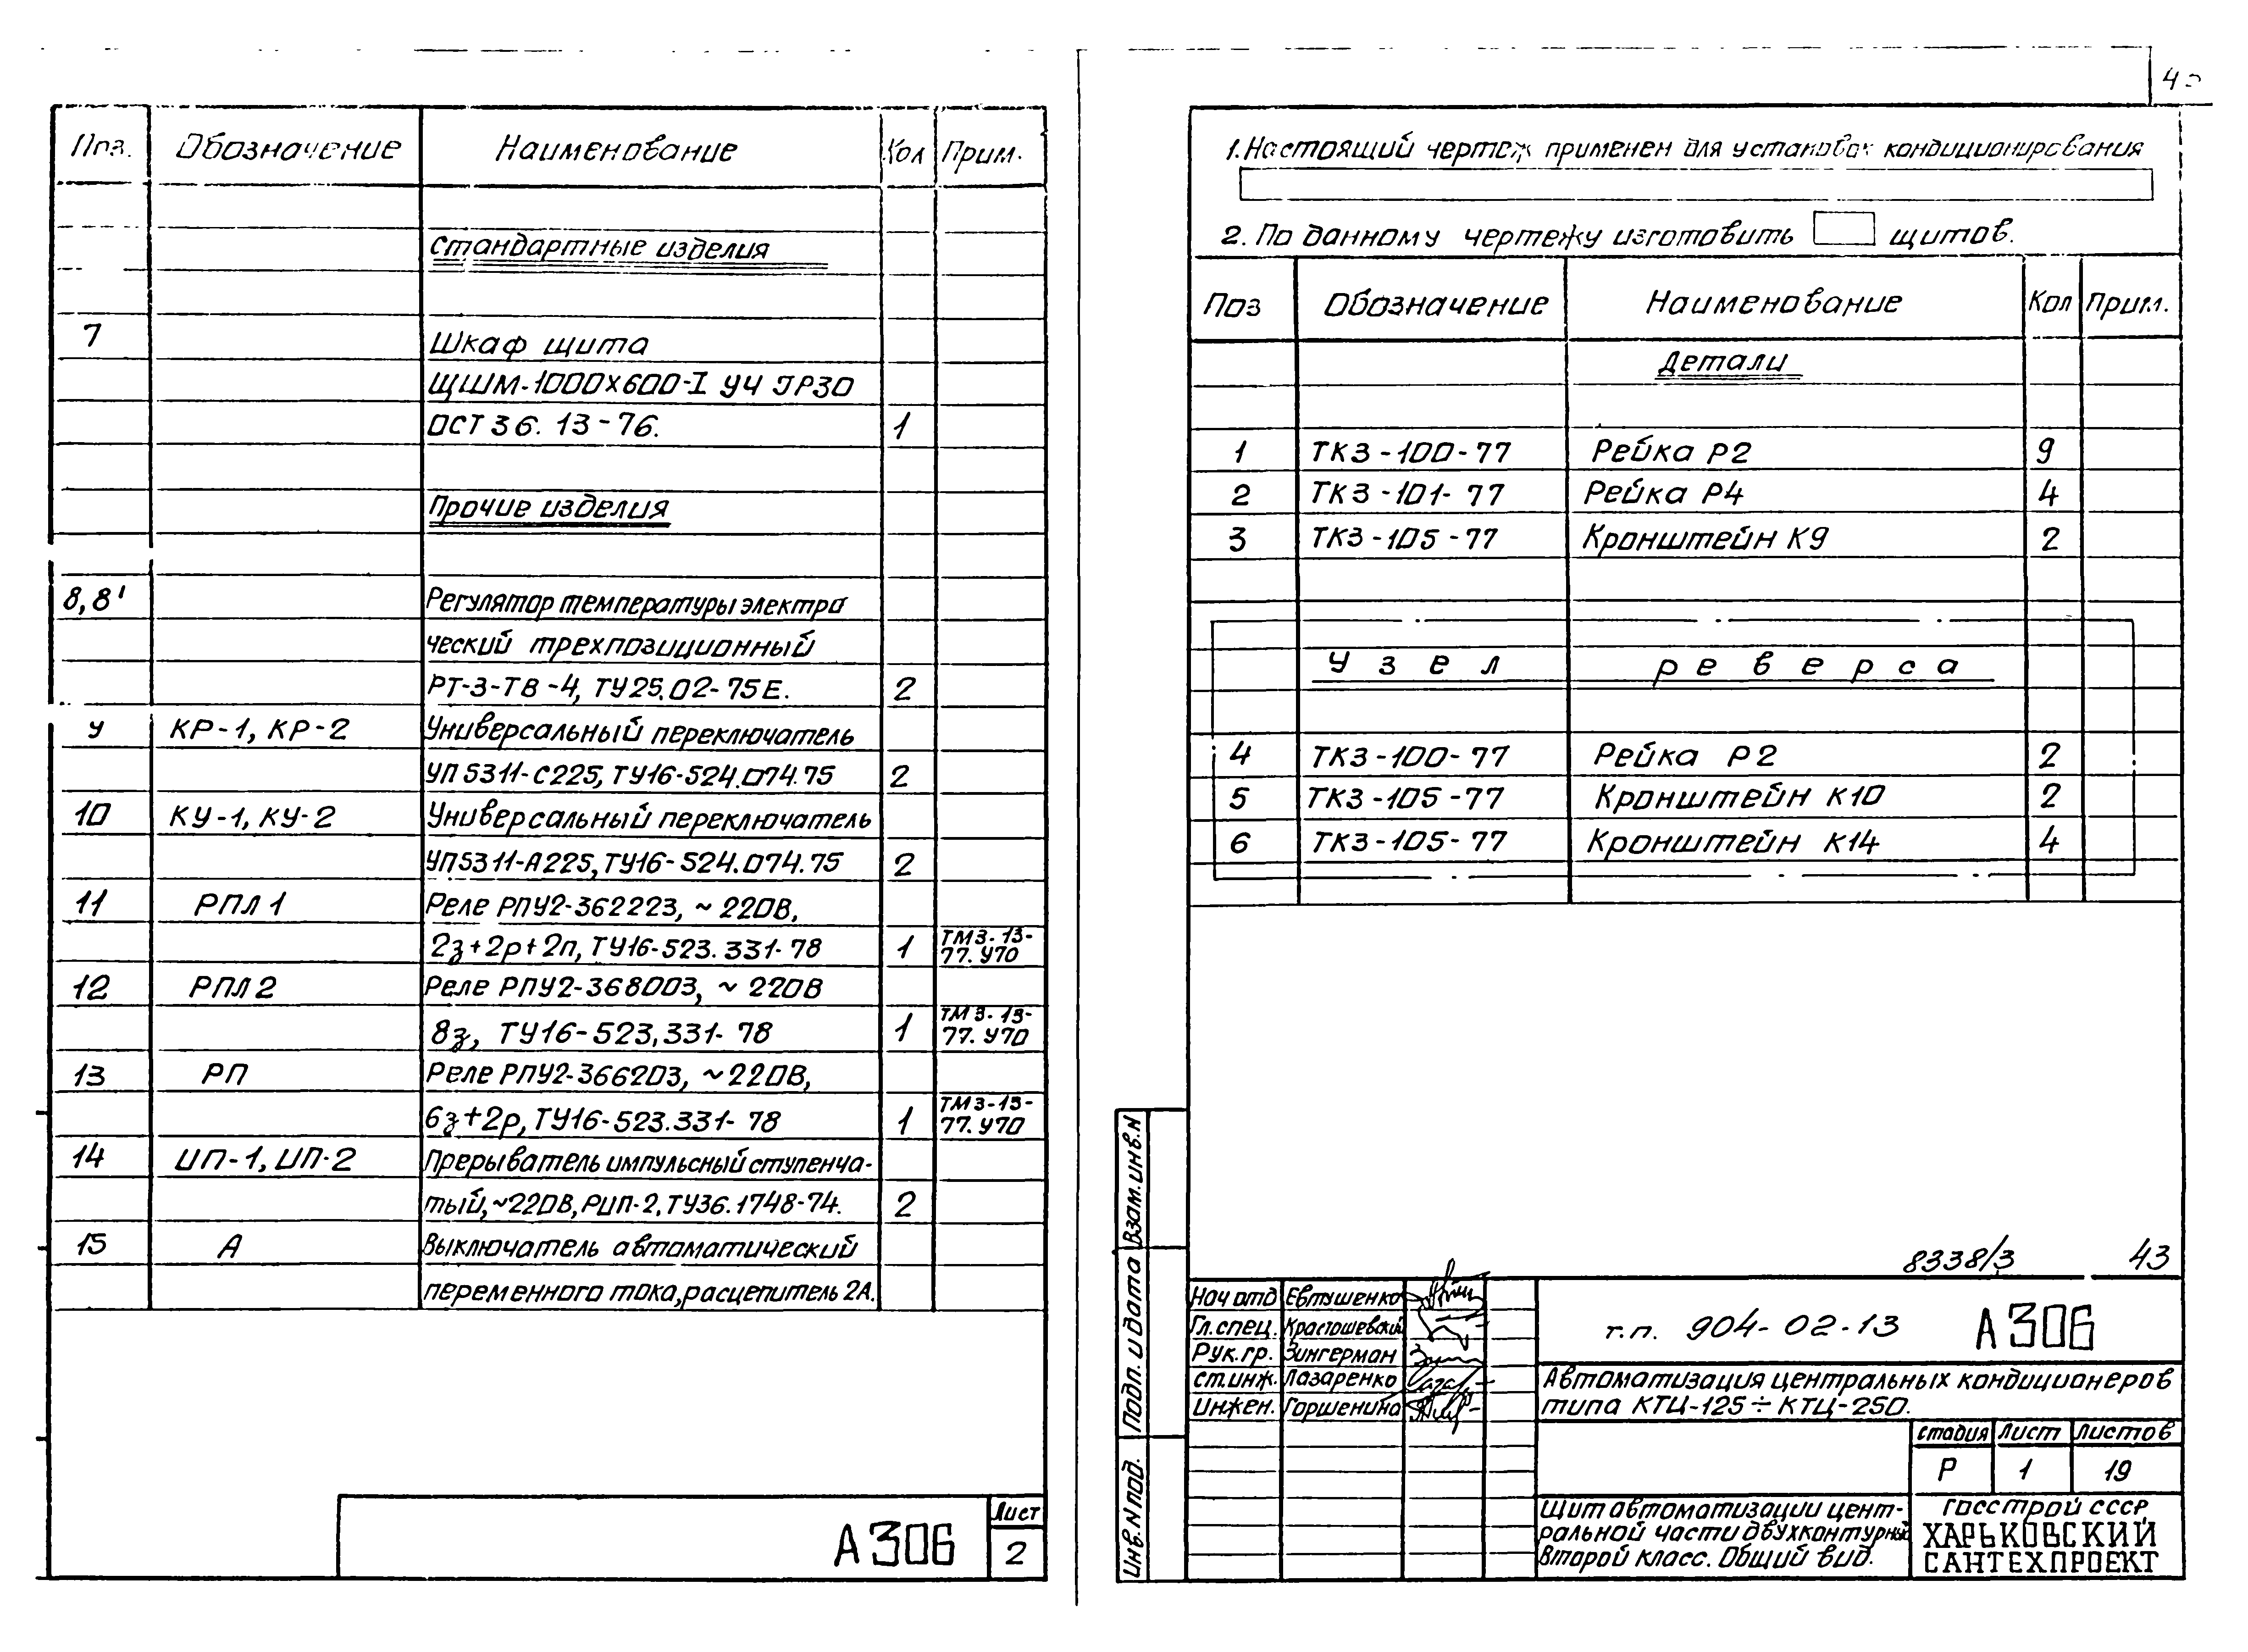 Поз. Обозначение Наименование Кол Прим.
Стандартные изделия
7 Шкаф щита
ЩШМ-1000х600-I УЧ JP30
ОСТ 36. 13-76. 1
Прочие изделия
8, 8' Регулятор температуры электри
ческий трехпозиционный
РТ-3-ТВ-4, ТУ25.02-75Е. 2
У КР-1, КР-2 Универсальный переключатель
УП5311-С225, ТУ16-524.074.75 2
10 КУ-1, КУ-2 Универсальный переключатель
УП5311-А225, ТУ16-524.074.75 2
11 РПЛ1 Реле РПУ2-362223, ~ 220В,
2з+2р+2п, ТУ16-523.331-78 1 ТМ3-13-
77.У70
12 РПЛ2 Реле РПУ2-368003, ~ 220В
8з, ТУ16-523,331-78 1 ТМ3-13-
77.У70
13 РП Реле РПУ2-366203, ~220В,
6з+2р, ТУ16-523.331-78 1 ТМ3-13-
77.У70
14 ИП-1, ИП-2 Прерыватель импульсный ступенча-
тый, ~220В, РИП-2, ТУ36.1748-74. 2
15 А Выключатель автоматический
переменного тока, расцепитель 2А.
А306
Лист
2
1. Настоящий чертеж применен для установок кондиционирования
2. По данному чертежу изготовить щитов.
Поз Обозначение Наименование Кол Прим.
Детали
1 ТК3-100-77 Рейка Р2 9
2 ТК3-101-77 Рейка Р4 4
3 ТК3-105-77 Кронштейн К9 2
Узел реверса
4 ТК3-100-77 Рейка Р2 2
5 ТК3-105-77 Кронштейн К10 2
6 ТК3-105-77 Кронштейн К14 4
8338/3 43
Взам.инв.N
Подп. и дата
Инв.N под.
Нач отд Евтушенко
Гл.спец. Крастошевский
Рук.гр. Зингерман
ст.инж. Лазаренко
Инжен. Горшенина
т.п. 904-02-13 А306
Автоматизация центральных кондиционеров
типа КТЦ-125÷КТЦ-250.
стадия Лист Листов
Р 1 19
Щит автоматизации цент-
ральной части двухконтурный
Второй класс. Общий вид.
Госстрой СССР
ХАРЬКОВСКИЙ
САНТЕХПРОЕКТ